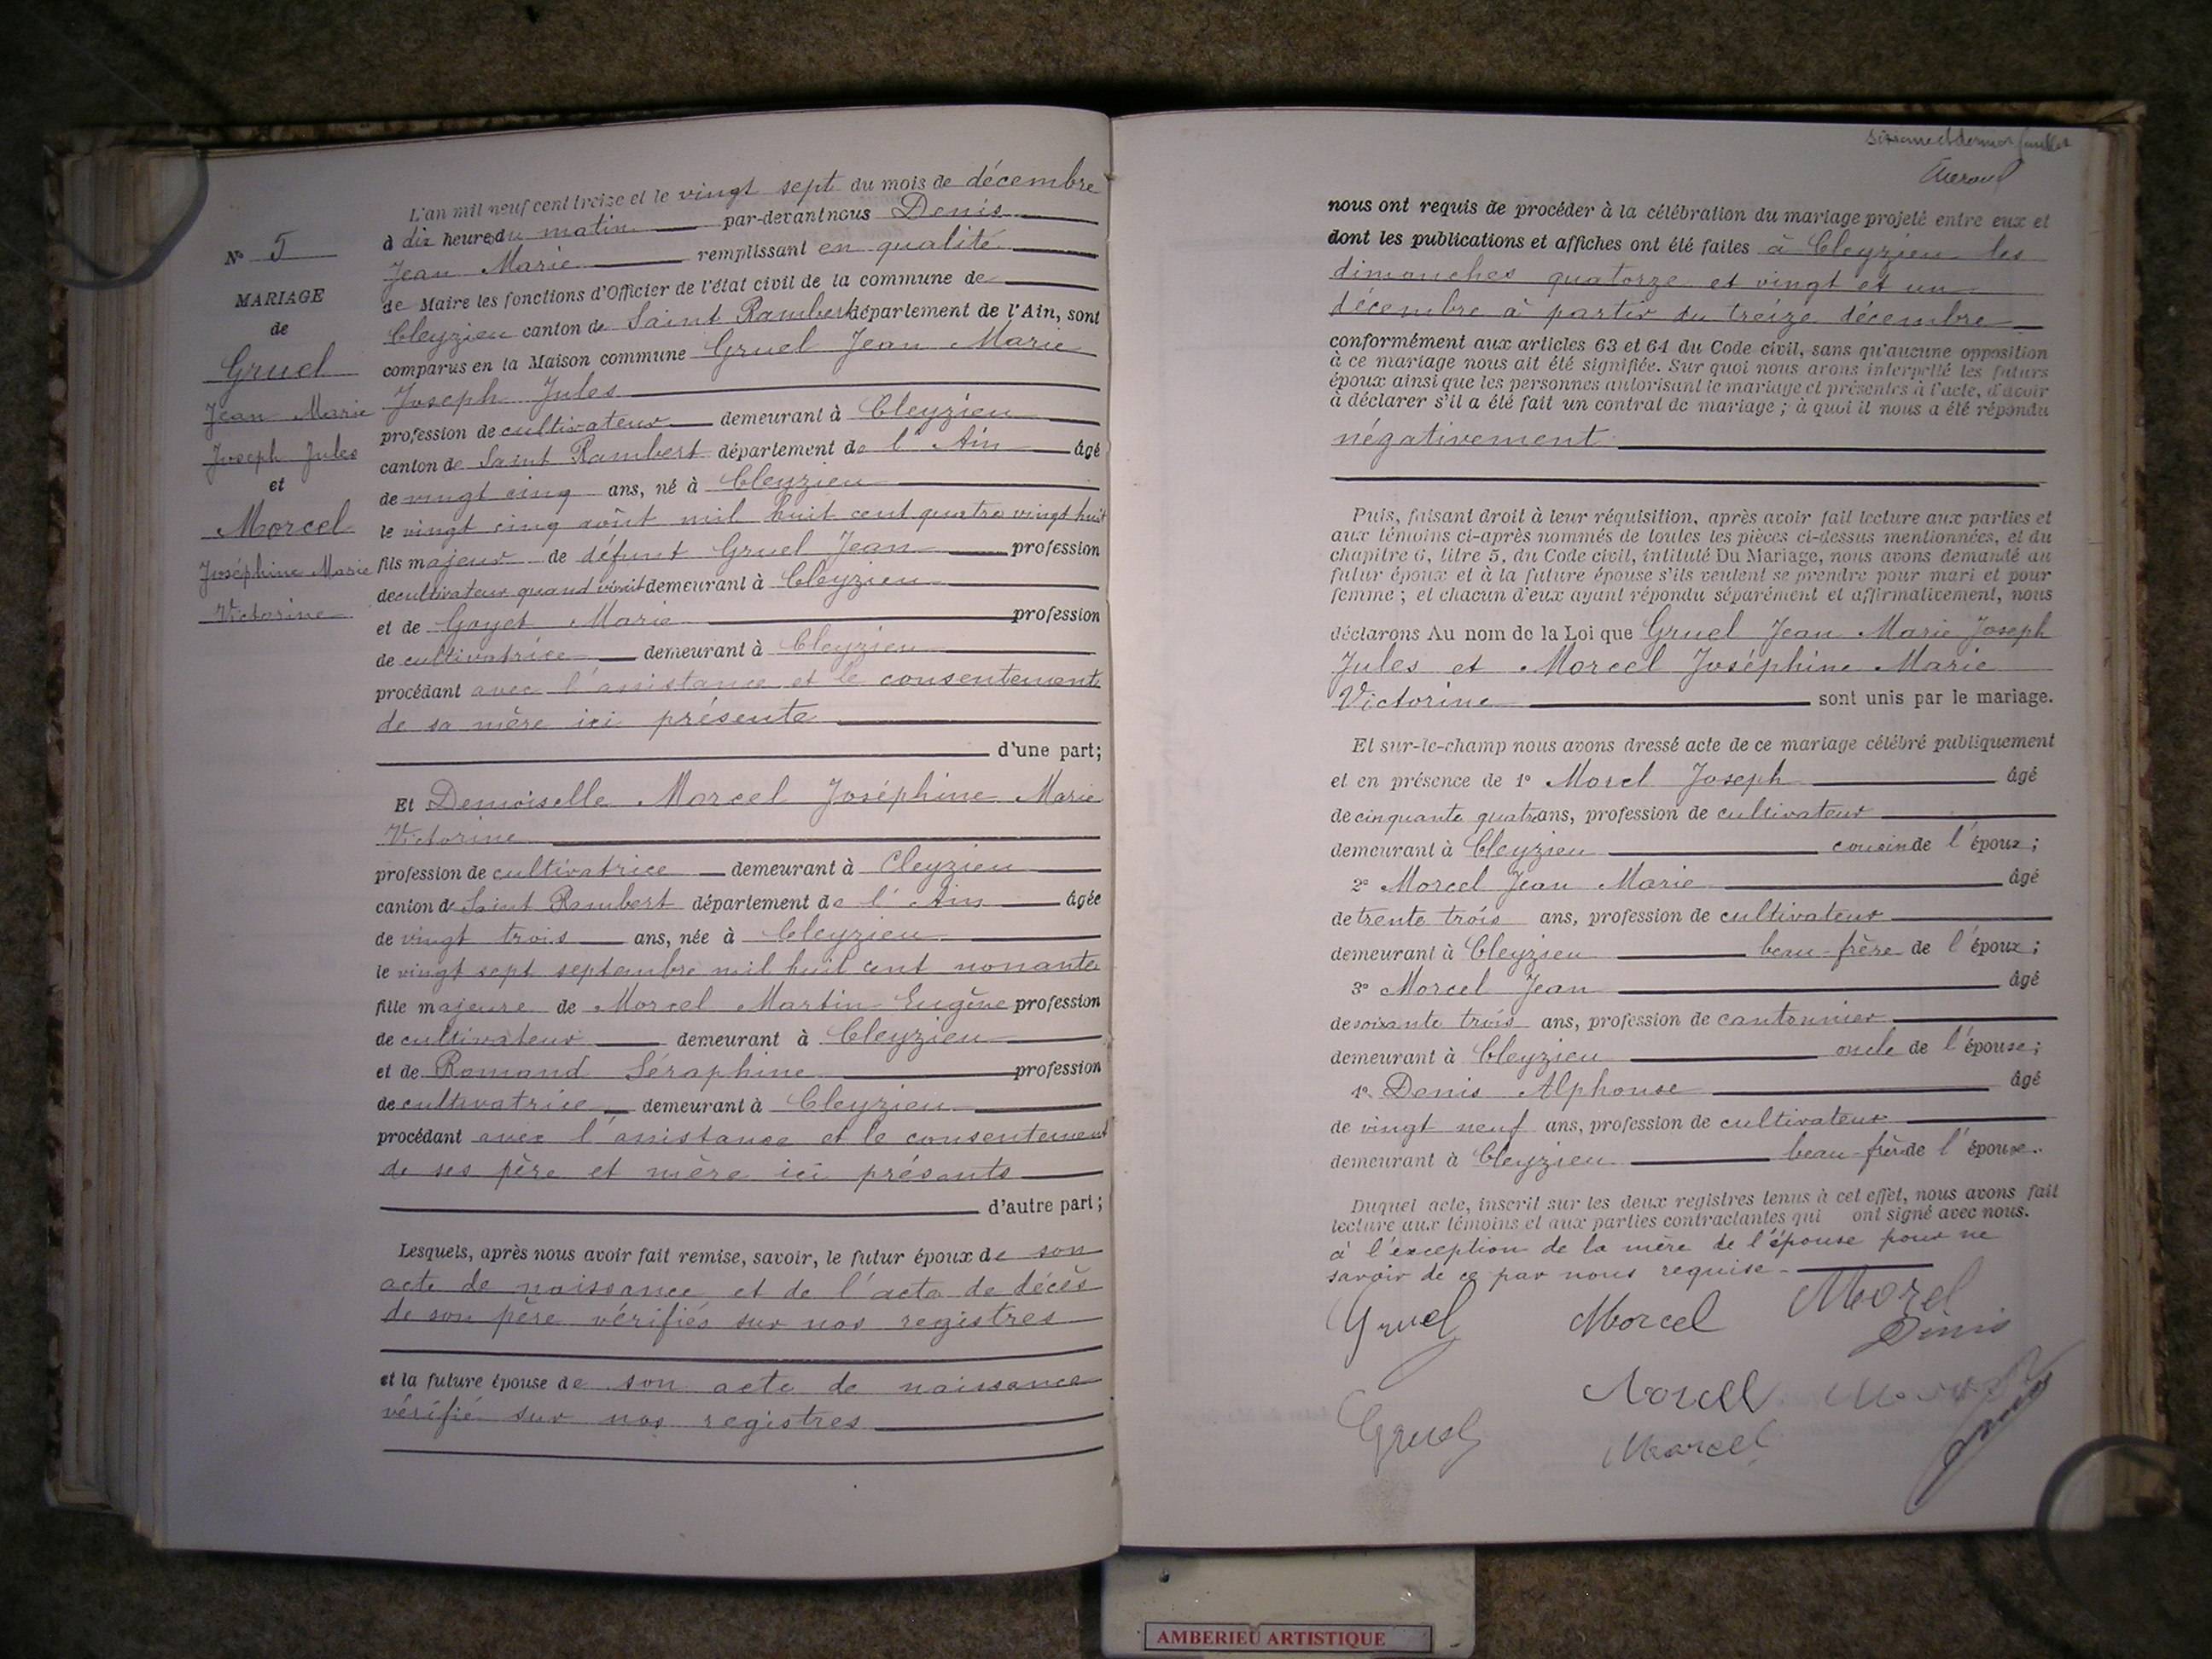 N° 5
MARIAGE
de
Gruel
Jean Marie
Joseph Jules
et
Morcel
Joséphine Marie
Victorine
L'an mil neuf cent treize et le vingt sept du mois de décembre
à dix heures du matin par-devant nous Denis
Jean Marie remplissant en qualité
de Maire les fonctions d'Officier de l'état civil de la commune de
Cleyzieu canton de Saint Rambert département de l'Ain, sont
comparus en la Maison commune Gruel Jean Marie
Joseph Jules
profession de cultivateur demeurant à Cleyzieu
canton de Saint Rambert département de l'Ain âgé
de vingt cinq ans, né à Cleyzieu
le vingt cinq août mil huit cent quatre vingt huit
fils majeur de défunt Gruel Jean profession
de cultivateur quand vivait demeurant à Cleyzieu
et de Goyet Marie profession
de cultivatrice demeurant à Cleyzieu
procédant avec l'assistance et le consentement
de sa mère ici présente
d'une part;
Et Demoiselle Morcel Joséphine Marie
Victorine
profession de cultivatrice demeurant à Cleyzieu
canton de Saint Rambert département de l'Ain âgée
de vingt trois ans, née à Cleyzieu
le vingt sept septembre mil huit cent nonante
fille majeure de Morcel Martin Eugène profession
de cultivateur demeurant à Cleyzieu
et de Romand Séraphine profession
de cultivatrice demeurant à Cleyzieu
procédant avec l'assistance et le consentement
de ses père et mère ici présents
d'autre part;
Lesquels, après nous avoir fait remise, savoir, le futur époux de son
acte de naissance et de l'acte de décès
de son père vérifiés sur nos registres
et la future épouse de son acte de naissance
vérifié sur nos registres
nous ont requis de procéder à la célébration du mariage projeté entre eux et
dont les publications et affiches ont été faites à Cleyzieu les
dimanches quatorze et vingt et un
décembre à partir du treize décembre
conformément aux articles 63 et 64 du Code civil, sans qu'aucune opposition
à ce mariage nous ait été signifiée. Sur quoi nous avons interpellé les futurs
époux ainsi que les personnes autorisant le mariage et présentes à l'acte, d'avoir
à déclarer s'il a été fait un contrat de mariage ; à quoi il nous a été répondu
négativement
Puis, faisant droit à leur réquisition, après avoir fait lecture aux parties et
aux témoins ci-après nommés de toutes les pièces ci-dessus mentionnées, et du
chapitre 6, titre 5, du Code civil, intitulé Du Mariage, nous avons demandé au
futur époux et à la future épouse s'ils veulent se prendre pour mari et pour
femme ; et chacun d'eux ayant répondu séparément et affirmativement, nous
déclarons Au nom de la Loi que Gruel Jean Marie Joseph
Jules et Morcel Joséphine Marie
Victorine sont unis par le mariage.
Et sur-le-champ nous avons dressé acte de ce mariage célébré publiquement
et en présence de 1° Morel Joseph âgé
de cinquante quatre ans, profession de cultivateur
demeurant à Cleyzieu cousin de l'époux ;
2° Morcel Jean Marie âgé
de trente trois ans, profession de cultivateur
demeurant à Cleyzieu beau-frère de l'époux ;
3° Morcel Jean âgé
de soixante trois ans, profession de cantonnier
demeurant à Cleyzieu oncle de l'épouse ;
4° Denis Alphonse âgé
de vingt neuf ans, profession de cultivateur
demeurant à Cleyzieu beau-frère de l'épouse.
Duquel acte, inscrit sur les deux registres tenus à cet effet, nous avons fait
lecture aux témoins et aux parties contractantes qui ont signé avec nous.
à l'exception de la mère de l'épouse pour ne
savoir de ce par nous requise.
Gruel Morcel Morel
Denis
Morcel
Gruel Marcel
AMBERIEU ARTISTIQUE